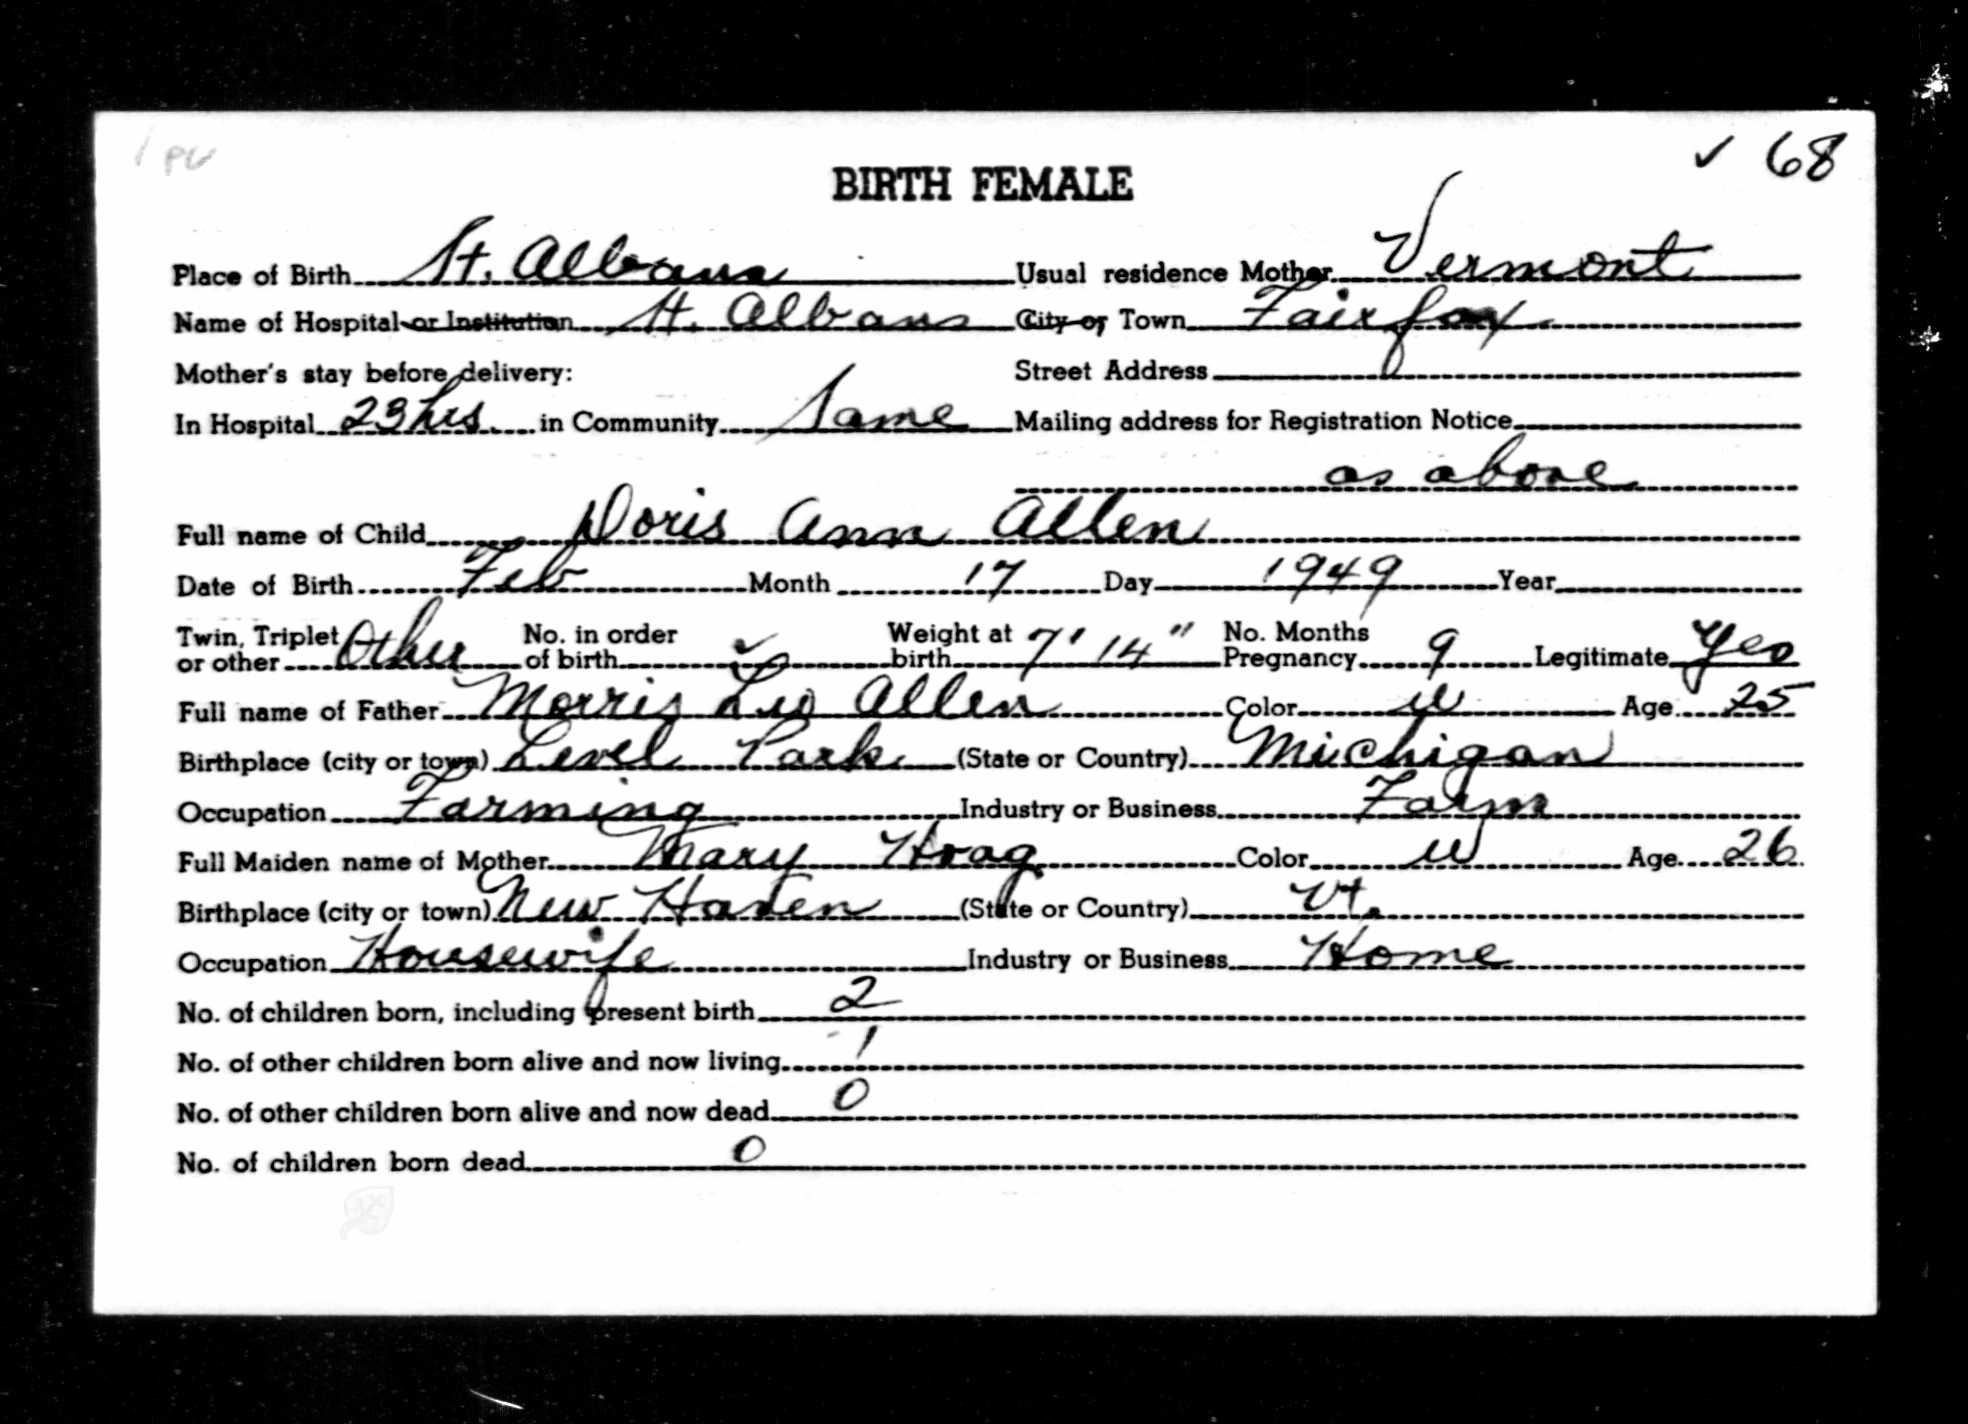 1 pu
✓ 68
BIRTH FEMALE
Place of Birth St. Albans Usual residence Mother Vermont
Name of Hospital or Institution St. Albans City or Town Fairfax
Mother's stay before delivery: Street Address
In Hospital 23 hrs. in Community Same Mailing address for Registration Notice
as above
Full name of Child Doris Ann Allen
Date of Birth Feb Month 17 Day 1949 Year
Twin, Triplet or other Other No. in order of birth ✓ Weight at birth 7' 14" No. Months Pregnancy 9 Legitimate Yes
Full name of Father Morris Leo Allen Color W Age 25
Birthplace (city or town) Level Park (State or Country) Michigan
Occupation Farming Industry or Business Farm
Full Maiden name of Mother Mary Hoag Color W Age 26
Birthplace (city or town) New Haven (State or Country) Vt.
Occupation Housewife Industry or Business Home
No. of children born, including present birth 2
No. of other children born alive and now living 1
No. of other children born alive and now dead 0
No. of children born dead 0